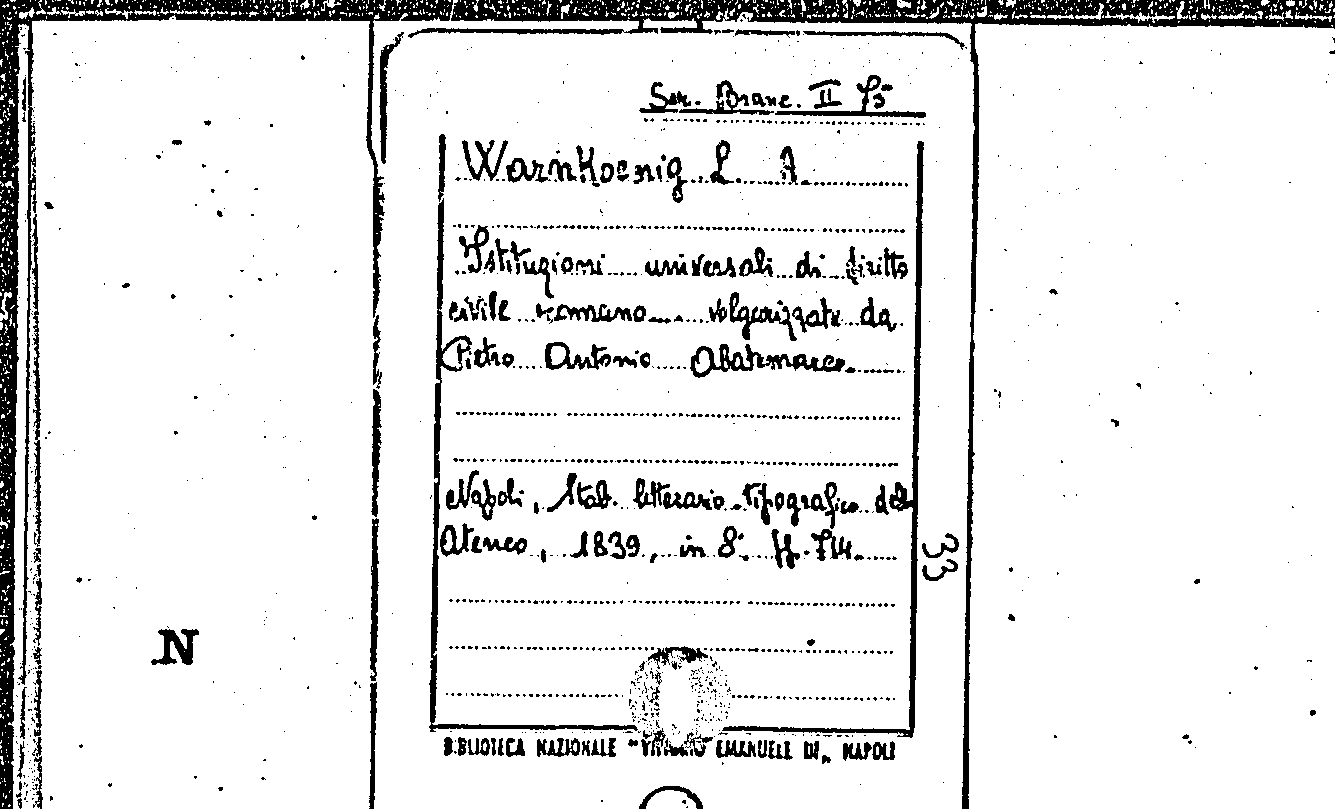 Ser. Branc. II 75
WarnKoenig L. A.
Istituzioni universali di diritto
civile romano volgarizzate da
Pietro Antonio Abatemarco.
Napoli, Stab. letterario tipografico dell'
Ateneo, 1839, in 8°. ff. 714.
33
N
BIBLIOTECA NAZIONALE "VITTORIO EMANUELE III„ NAPOLI